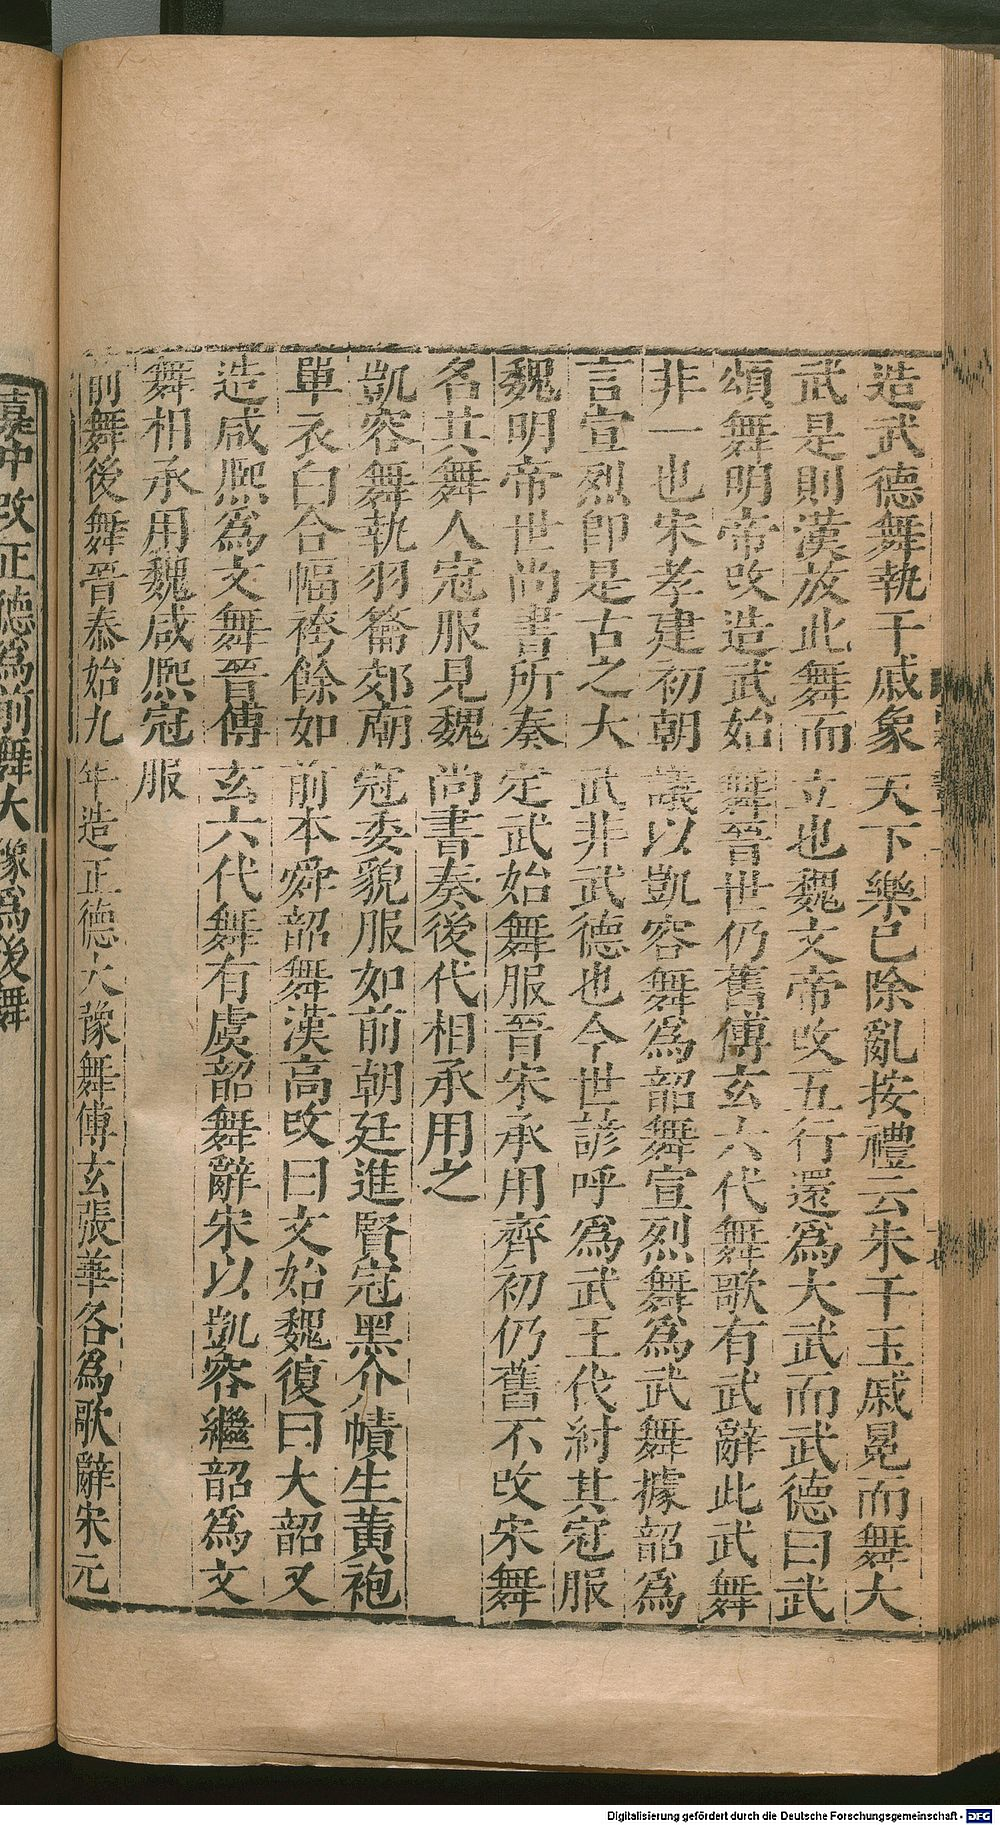 造武德舞執干戚象天下樂已除亂按禮云朱干玉戚冕而舞大
武是則漢放此舞而立也魏文帝改五行還為大武而武德曰武
頌舞明帝改造武始舞晉世仍舊傅玄六代舞歌有武辭此武舞
非一也宋孝建初朝議以凱容舞為韶舞宣烈舞為武舞據韶為
言宣烈即是古之大武非武德也今世諺呼為武王伐紂其冠服
魏明帝世尚書所奏定武始舞服晉宋承用齊初仍舊不改宋舞
名其舞人冠服見魏尚書奏後代相承用之
凱容舞執羽籥郊廟冠委貌服如前朝廷進賢冠黑介幘生黃袍
單衣白合幅袴餘如前本舜韶舞漢高改曰文始魏復曰大韶又
造咸熙為文舞晉傅玄六代舞有虞韶舞辭宋以凱容繼韶為文
舞相承用魏咸熙冠服
前舞後舞晉泰始九年造正德大豫舞傅玄張華各為歌辭宋元
嘉中改正德為前舞大豫為後舞
Digitalisierung gefördert durch die Deutsche Forschungsgemeinschaft - DFG